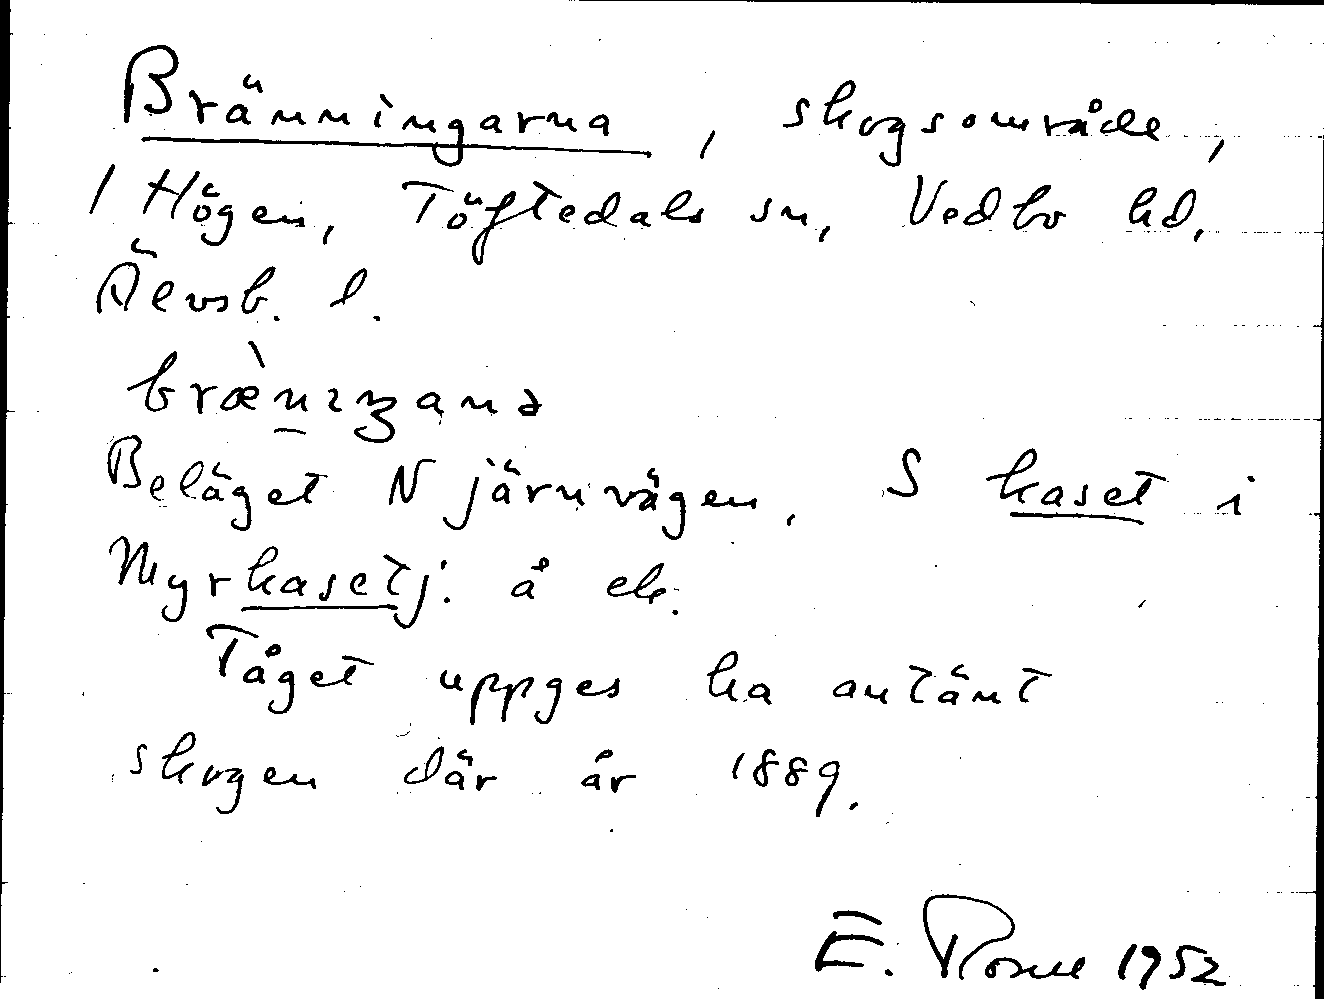 Bränningarna, skogsområde,
1 Högen, Töftedals sn, Vedbo hd,
Älvsb. l.
Beläget N järnvägen, S kaset i
Myrkasetj. å ek.
Tåget uppges ha antänt
skogen där år 1889.
E. Rosne 1952